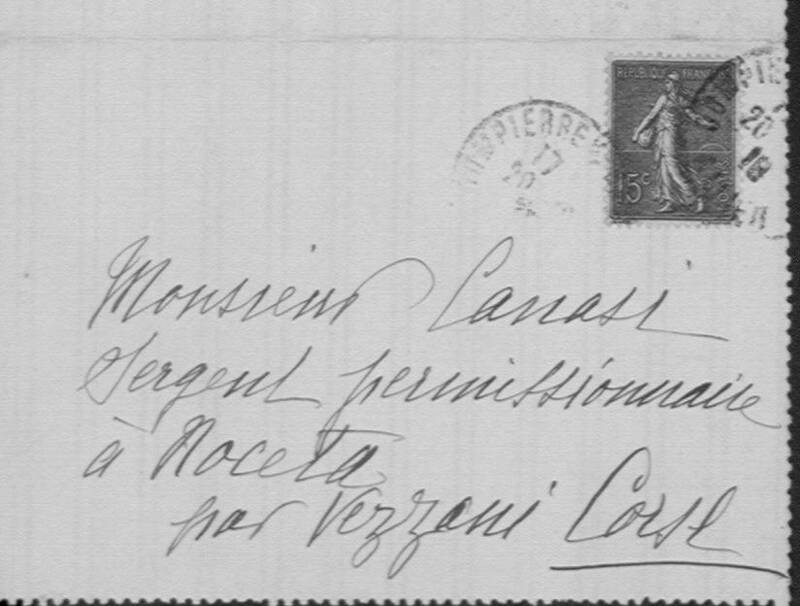 REPUBLIQUE FRANÇAISE
15c
POSTES
17
20
20
18
Monsieur Canasi
Sergent permissionnaire
à Noceta
par Vezzani Corse